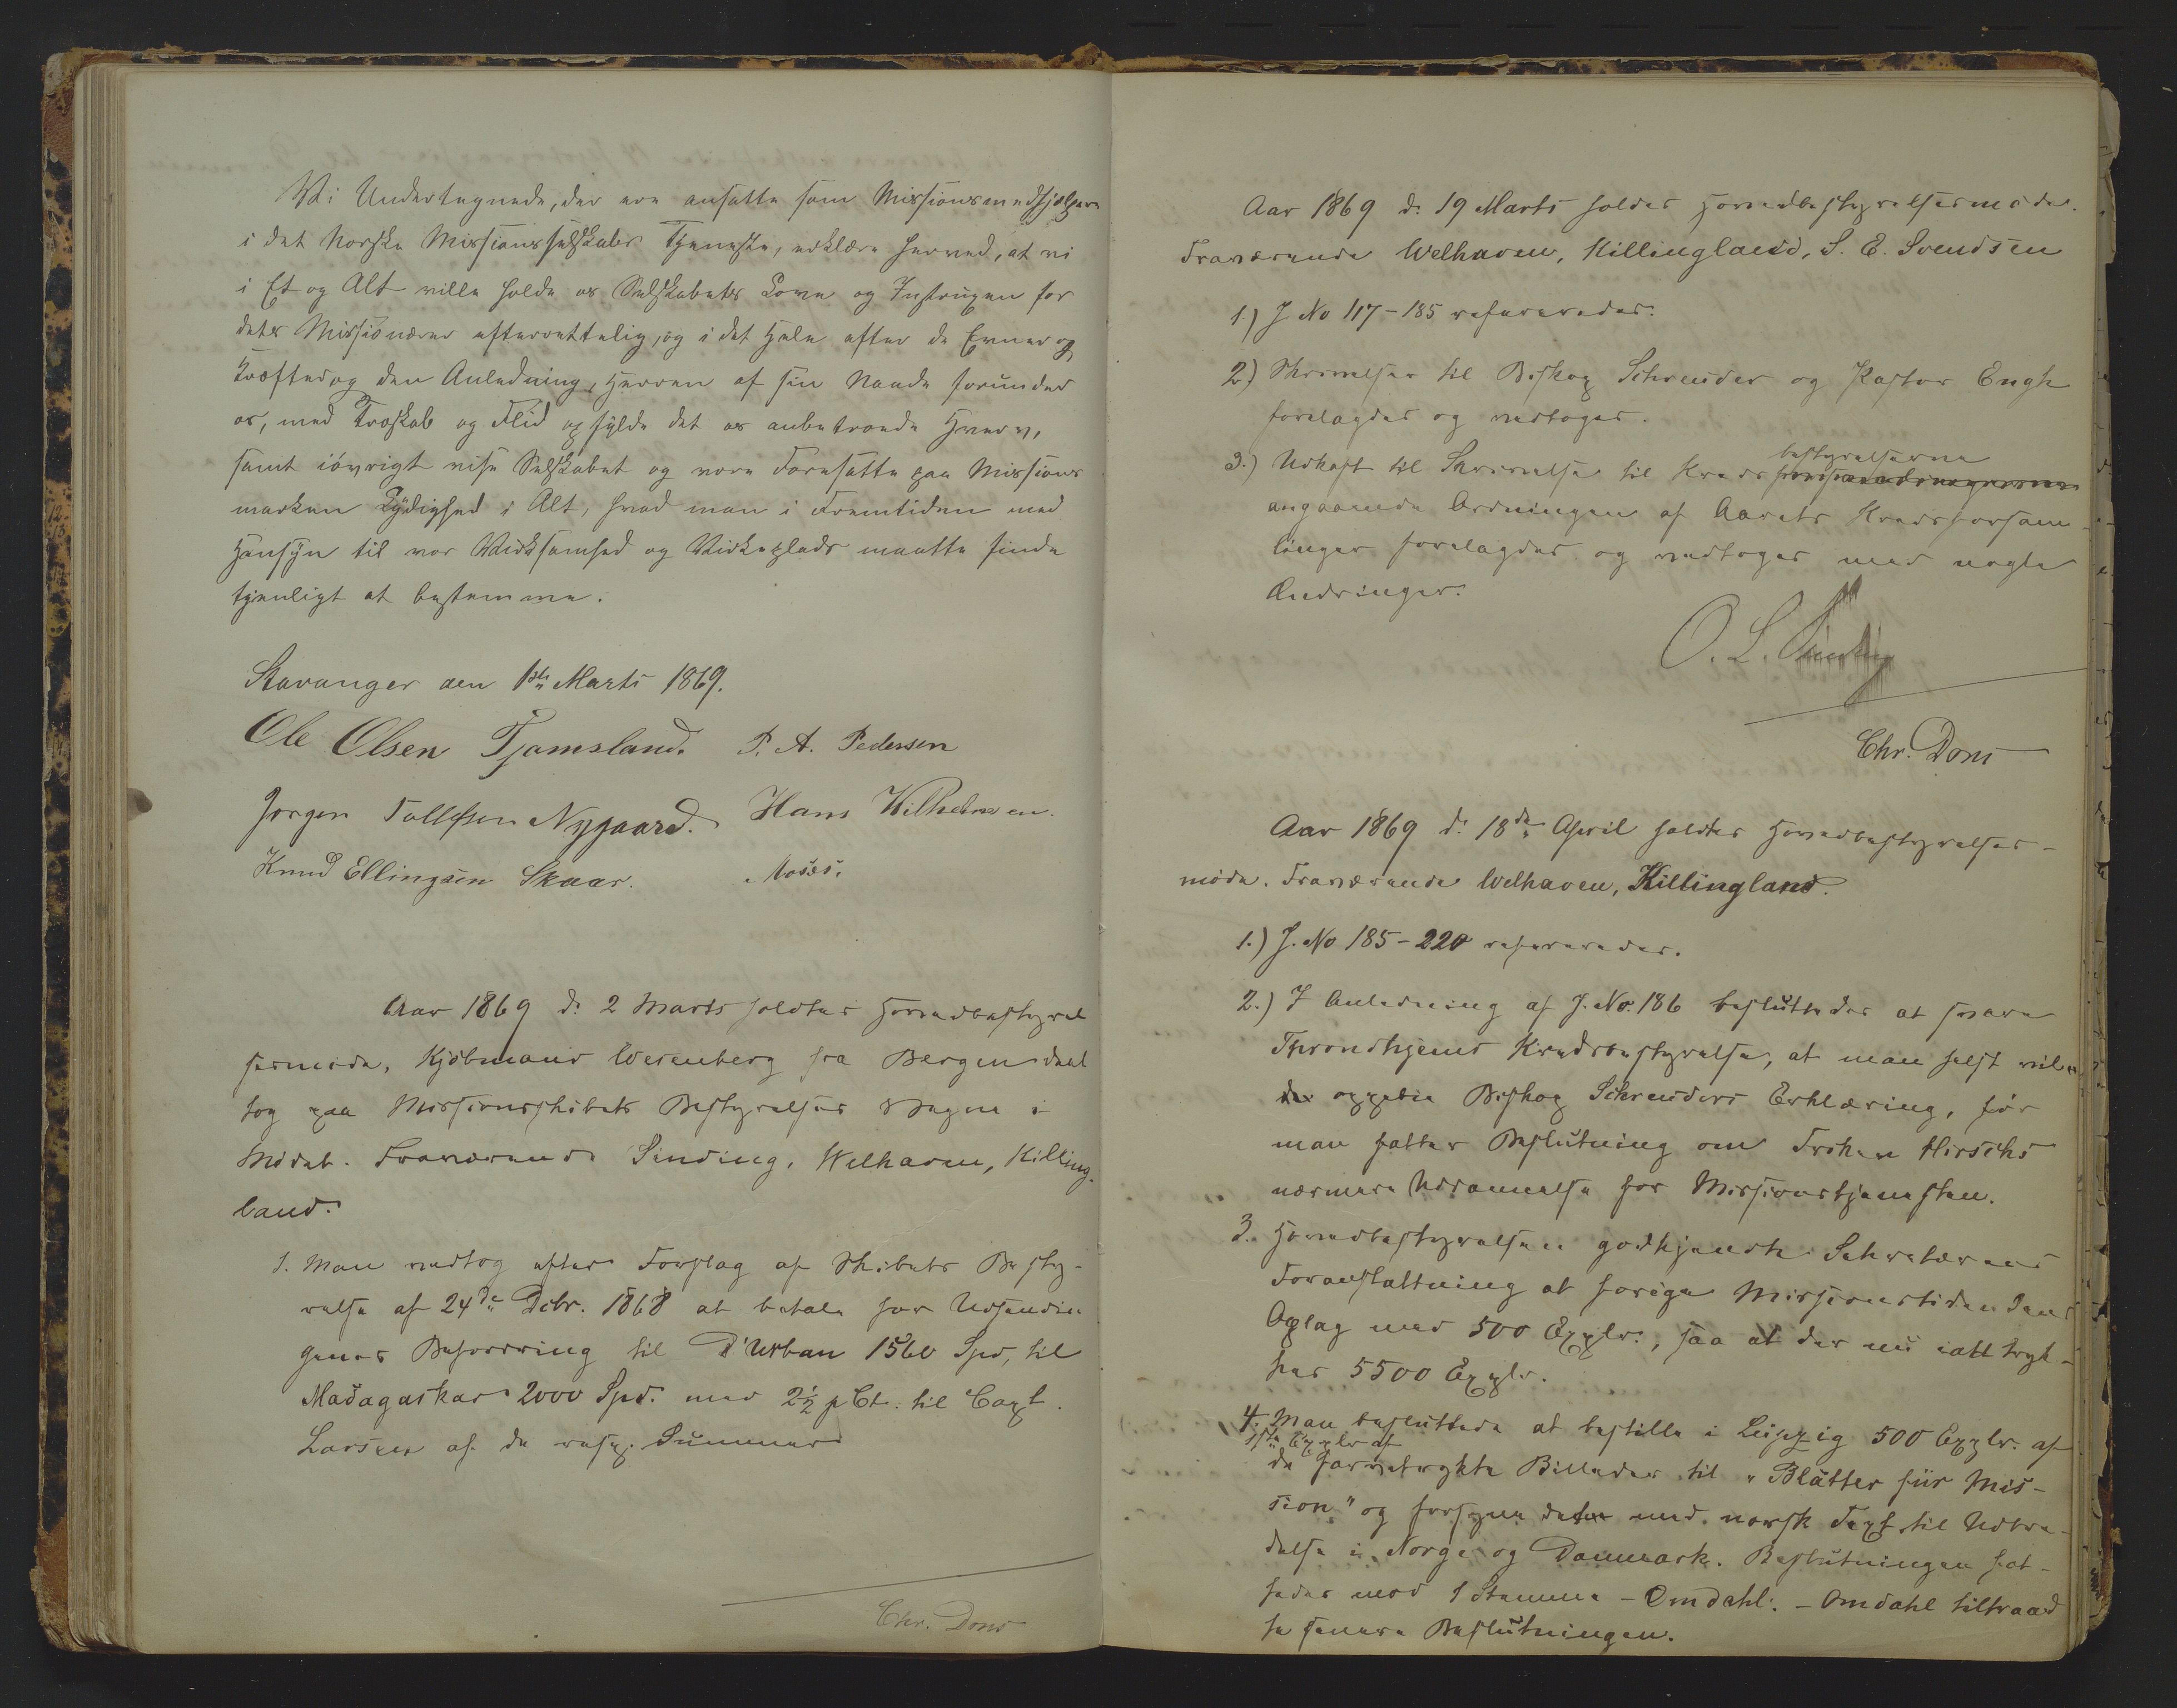 Vi Undertegnede, der ere ansatte som Missionsmedhjælpere
i det Norske Missionsselskabs Tjeneste, erklære herved, at vi
i Et og Alt ville holde os Selskabets Love og Instruxen for
dets Missionærer efterrettelig, og i det Hele efter de Evner og
Kræfter og den Anledning, Herren af sin Naade forunder
os, med Troskab og Flid opfylde det os anbetroede Hverv,
samt iøvrigt vise Selskabet og vore Foresatte paa Missions
marken Lydighed i Alt, hvad man i Fremtiden med
Hensyn til vor Virksomhed og Virkeplads maatte finde
tjenligt at bestemme.
Stavanger den 1ste Marts 1869.
Ole Olsen Tjomsland. P. A. Pedersen
Jørgen Tollefsen Nygaard. Hans Wilhelmsen.
Knud Ellingsen Skaar. Moses.
Aar 1869 d. 2 Marts holdtes Hovedbestyrel
sesmøde, Kjøbmand Wesenberg fra Bergen deel
tog paa Missionsskibets Bestyrelses Vegne i
Mødet. Fraværende Sinding, Welhaven, Killing-
land.
1. Man vedtog efter Forslag af Skibets Besty-
relse af 24de Debr. 1868 at betale for Udsendin
genes Befordring til D'Urban 1560 Spd, til
Madagaskar 2000 Spd. med 2½ pCt. til Capt.
Larsen af de resp. Summer
Chr. Dons
Aar 1869 d. 19 Marts holdes Hovedbestyrelsesmøde.
Fraværende Welhaven, Killingland, S. E. Svendsen
1.) J No 117-185 refereredes.
2.) Skrivelser til Biskop Schreuder og Pastor Engh
forelagdes og vedtoges.
bestyrelserne
3.) Udkast til Skrivelse til Kreds
angaaende Ordningen af Aarets Kredsforsam-
linger forelagdes og vedtoges med nogle
Ændringer.
O. L. Sinding
Chr. Dons
Aar 1869 d. 18de April holdtes Hovedbestyrelses-
møde. Fraværende Welhaven, Killingland.
1.) J. No 185-220 refereredes.
2.) I Anledning af J. No. 186 besluttedes at svare
Throndhjems Kredsbestyrelse, at man helst vil
oppebie Biskop Schreuders Erklæring, før
man fatter Beslutning om Frøken Hirschs
nærmere Uddannelse for Missionstjenesten.
3. Hovedbestyrelsen godkjendte Sekretærens
Foranstaltning at forøge Missionstidendens
Oplag med 500 Explr., saa at der nu ialt tryk-
kes 5500 Explr.
4. Man besluttede at bestille i Leipzig 500 Explr. af
1ste Explr af
de farvetrykte Billeder til "Blätter für Mis-
sion" og forsyne dem med norsk Text til Udbre-
delse i Norge og Danmark. Beslutningen fat-
tedes mod 1 Stemme - Omdahl. - Omdahl tiltraad
te senere Beslutningen.